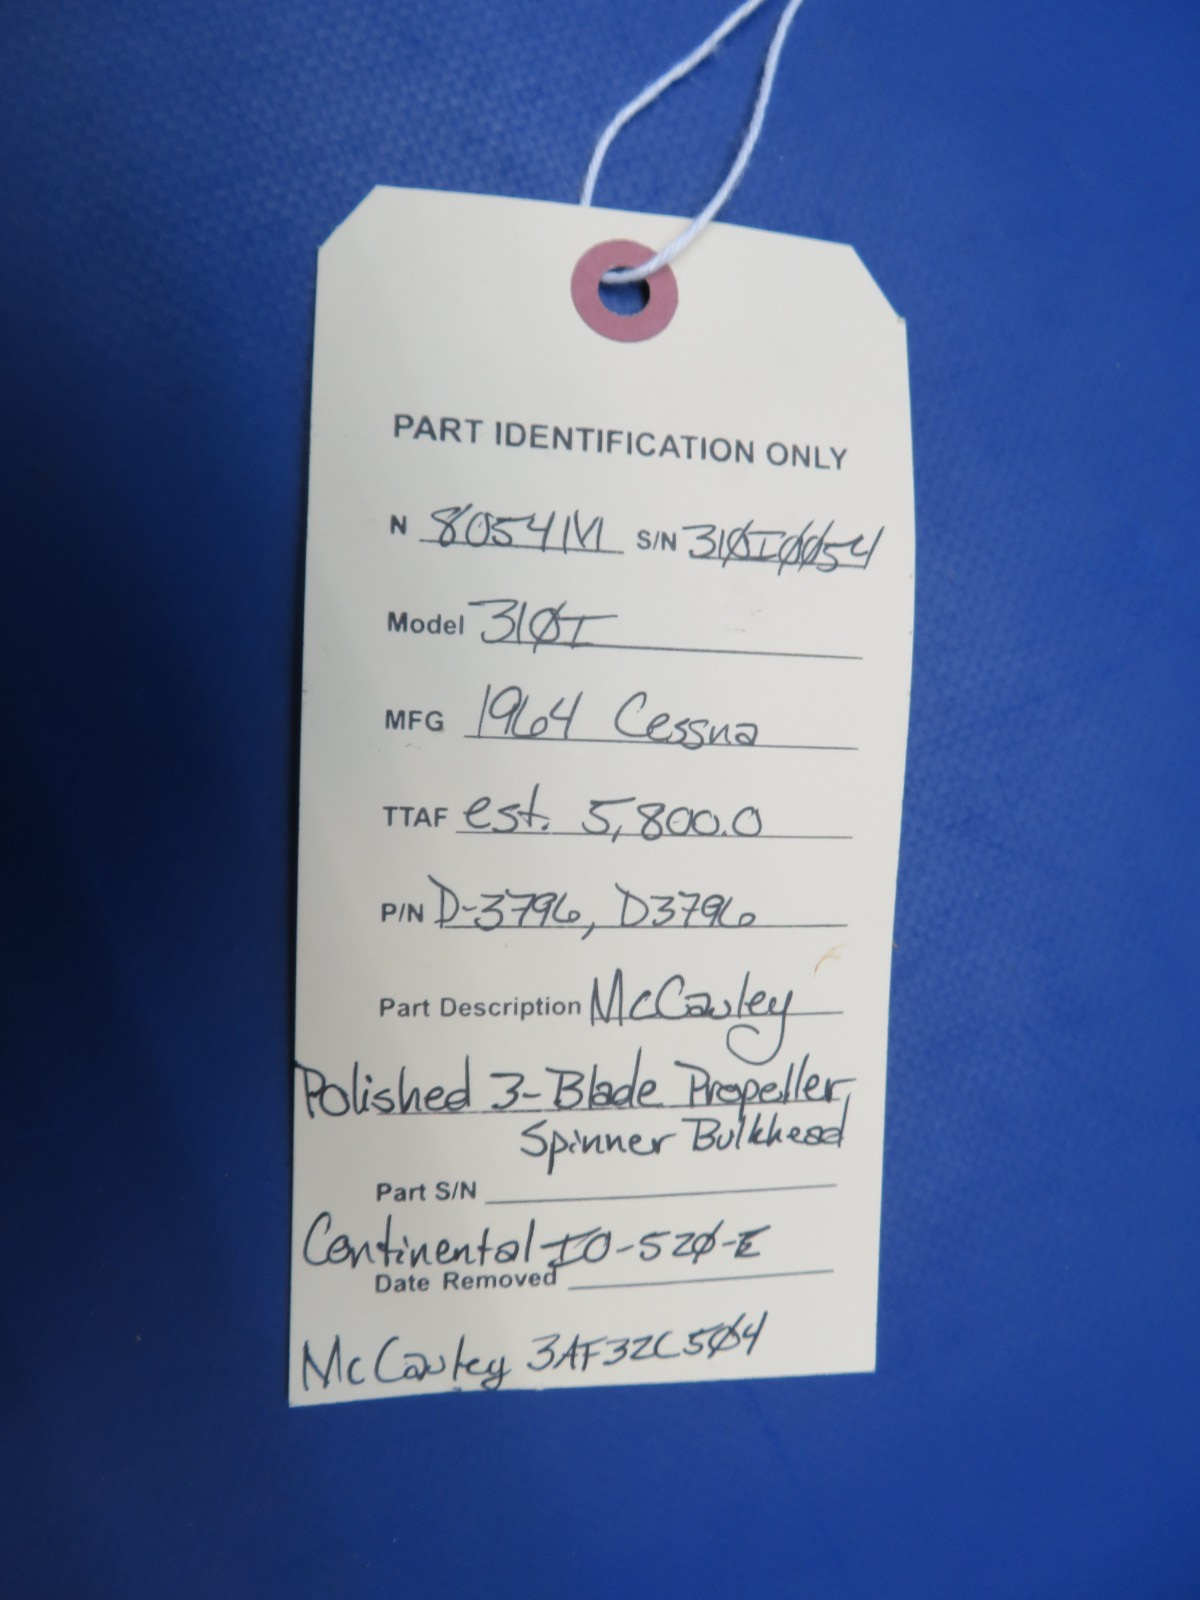 PART IDENTIFICATION ONLY
N 8054M S/N 310I0054
Model 310I
MFG 1964 Cessna
TTAF est. 5,800.0
P/N D-3796, D3796
Part Description McCauley
Polished 3-Blade Propeller,
Spinner Bulkhead
Part S/N
Continental IO-520-E
Date Removed
McCauley 3AF32C504